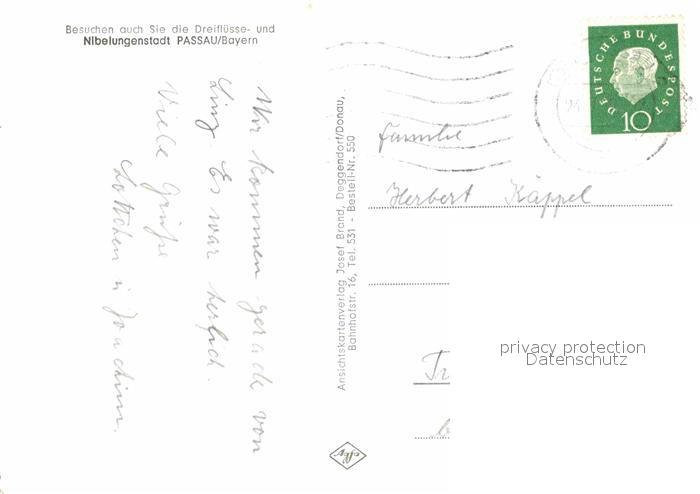 Besuchen auch Sie die Dreiflüsse- und
Nibelungenstadt PASSAU/Bayern
Wir kommen gerade von
Linz. Es war herlich.
Viele Grüße
Lottchen u Joachim.
Ansichtskartenverlag Josef Brand, Deggendorf/Donau,
Bahnhofstr. 16, Tel. 531 - Bestell-Nr. 550
DEUTSCHE BUNDESPOST
10
Familie
Herbert Käppel
privacy protection
Datenschutz
Tr
b